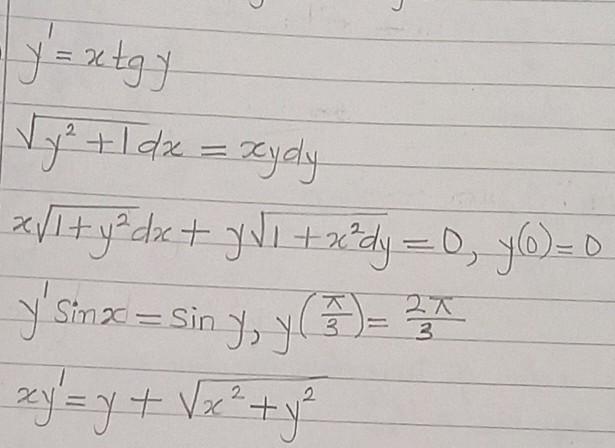 y' = x tg y
√(y² + 1) dx = xydy
x√(1 + y²) dx + y√(1 + x²dy) = 0, y(0) = 0
y' sin x = sin y, y(π/3) = 2π/3
xy' = y + √(x² + y²)